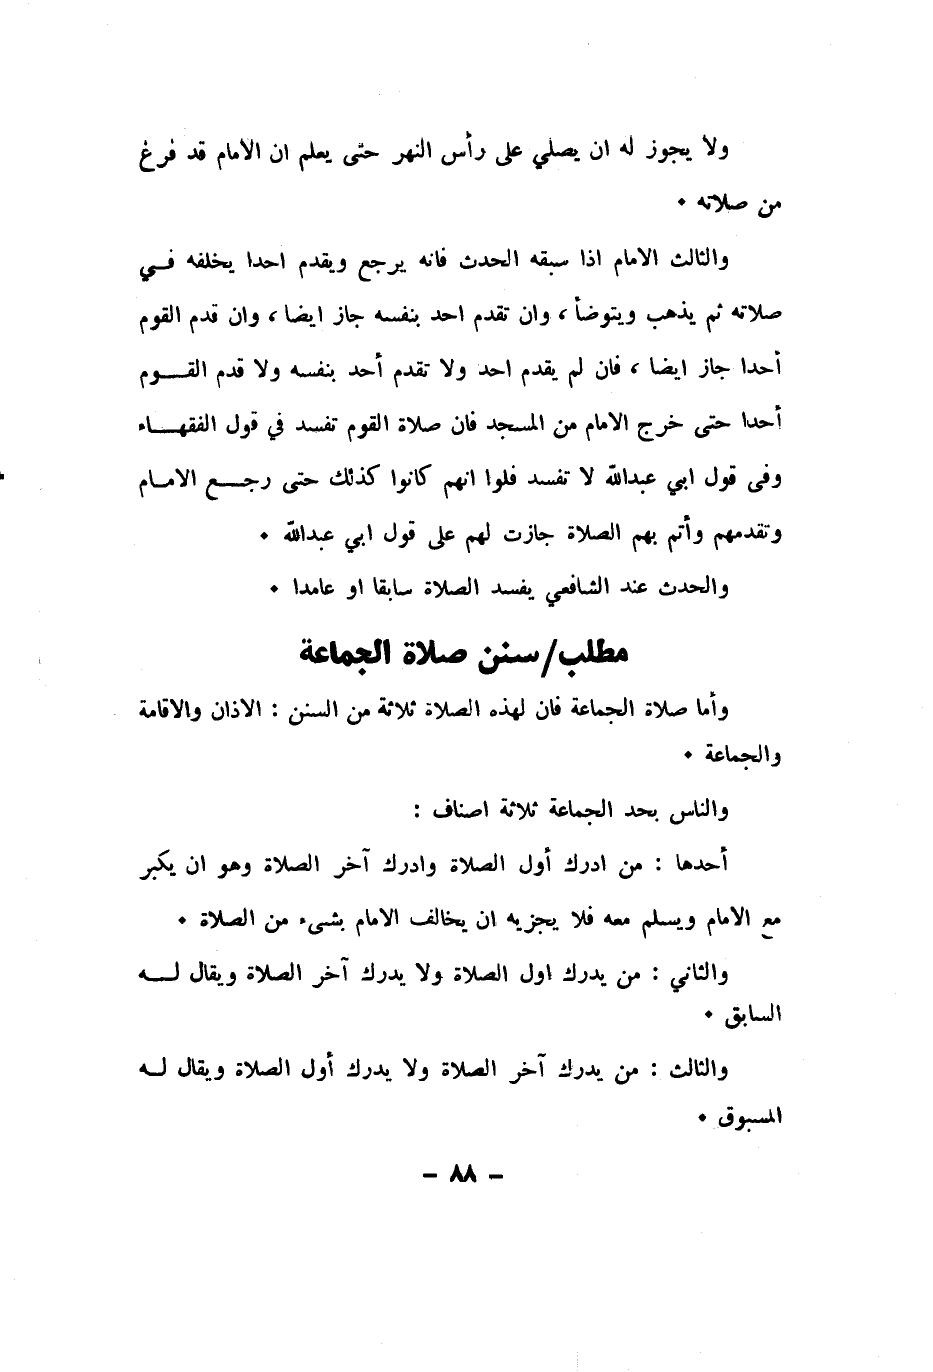 ولا يجوز له ان يصلي على رأس النهر حتى يعلم ان الامام قد فرغ
من صلاته ٠
والثالث الامام اذا سبقه الحدث فانه يرجع ويقدم احدا يخلفه فــي
صلاته ثم يذهب ويتوضأ ، وان تقدم احد بنفسه جاز ايضا ، وان قدم القوم
أحدا جاز ايضا ، فان لم يقدم احد ولا تقدم أحد بنفسه ولا قدم القـــوم
أحدا حتى خرج الامام من المسجد فان صلاة القوم تفسد في قول الفقهـــاء
وفى قول ابي عبدالله لا تفسد فلوا انهم كانوا كذلك حتى رجـــع الامــام
وتقدمهم وأتم بهم الصلاة جازت لهم على قول ابي عبدالله ٠
والحدث عند الشافعي يفسد الصلاة سابقا او عامدا ٠
مطلب/سنن صلاة الجماعة
وأما صلاة الجماعة فان لهذه الصلاة ثلاثة من السنن : الاذان والاقامة
والجماعة ٠
والناس بحد الجماعة ثلاثة اصناف :
أحدها : من ادرك أول الصلاة وادرك آخر الصلاة وهو ان يكبر
مع الامام ويسلم معه فلا يجزيه ان يخالف الامام بشىء من الصلاة ٠
والثاني : من يدرك اول الصلاة ولا يدرك آخر الصلاة ويقال لــه
السابق ٠
والثالث : من يدرك آخر الصلاة ولا يدرك أول الصلاة ويقال لــه
المسبوق ٠
– ٨٨ –